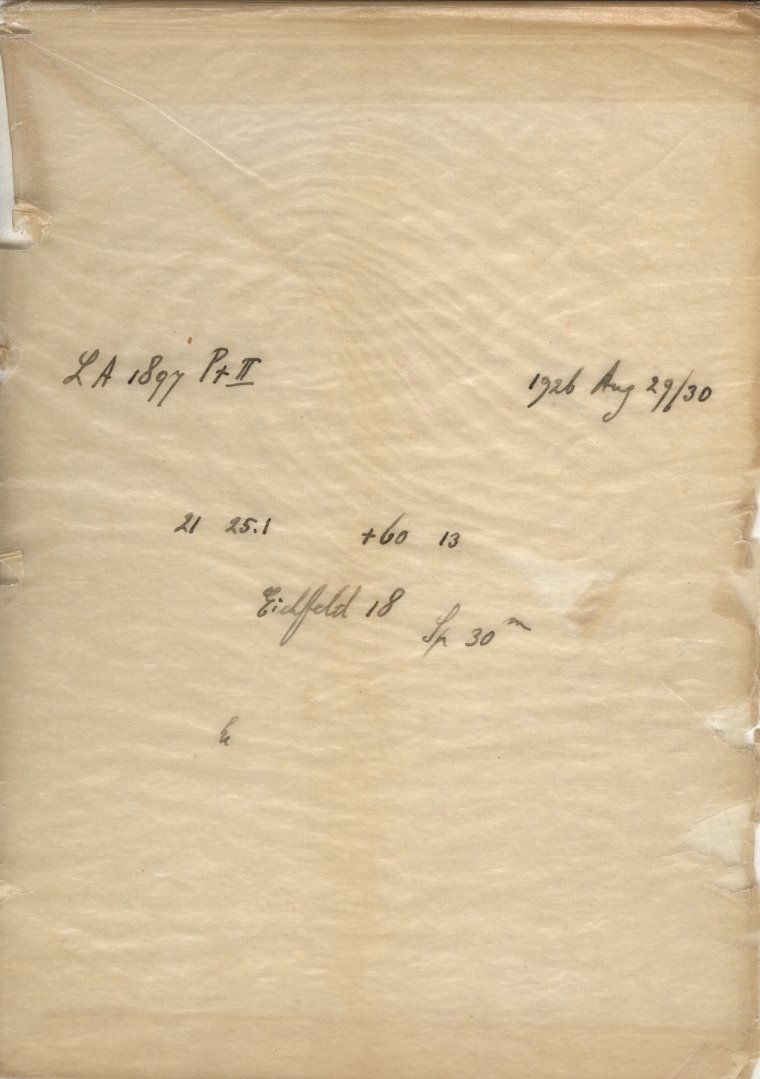 LA 1897 Pt II 1926 Aug 29/30
21 25.1 +60 13
Eichfeld 18 Sp 30ᵐ